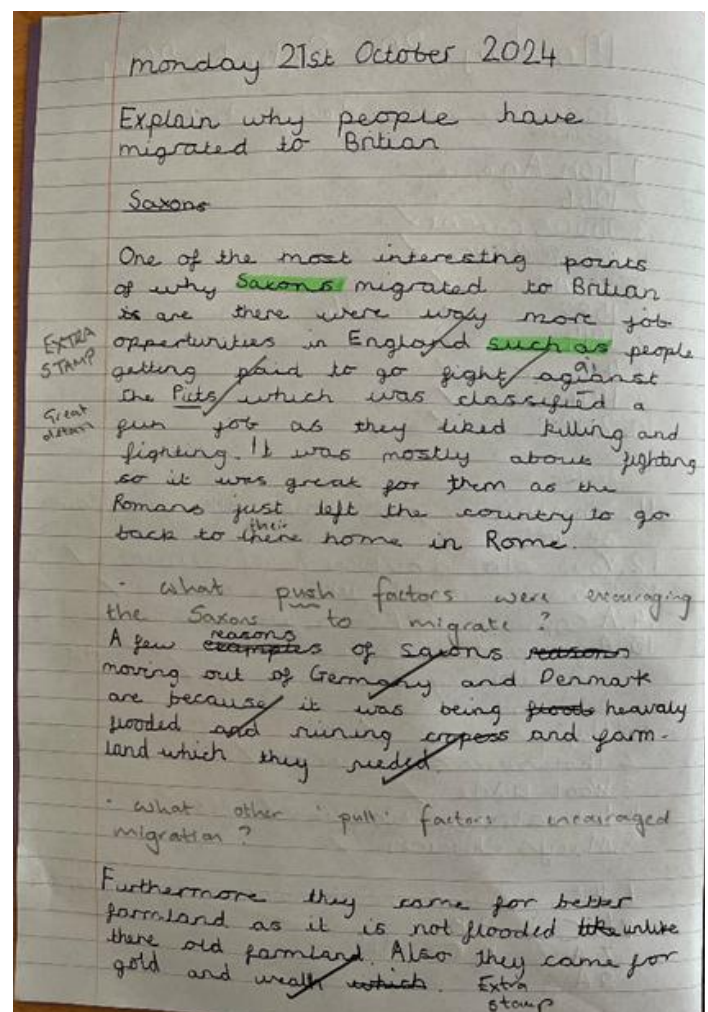 monday 21st October 2024
Explain why people have
migrated to Britian
Saxons
One of the most interesting points
of why Saxons migrated to Britian
is are there were way more job
EXTRA
STAMP
opportunities in England such as people
getting paid to go fight against
the Picts which was classified a
Great
detail
fun job as they liked killing and
fighting. It was mostly about fighting
so it was great for them as the
Romans just left the country to go
back to there their home in Rome.
- what push factors were encouraging
the Saxons to migrate?
A few examples reasons of saxons reasons
moving out of Germany and Denmark
are because it was being floods heavaly
flooded and ruining cropess and farm-
land which they needed.
- what other 'pull' factors encouraged
migration?
Furthermore they came for better
farmland as it is not flooded like unlike
there old farmland. Also they came for
gold and wealh which.
Extra
stamp